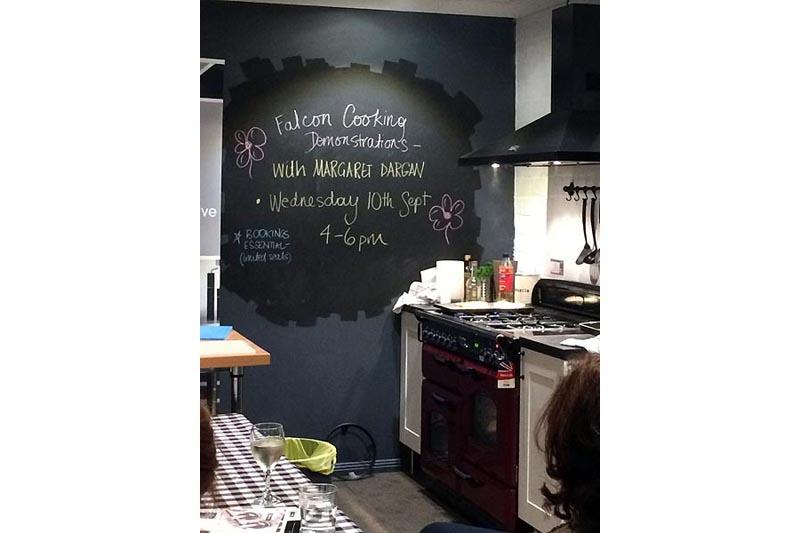 Falcon Cooking
Demonstrations –
with MARGARET DARGAN
• Wednesday 10th Sept
4-6pm
* BOOKINGS
ESSENTIAL –
(limited seats)
ve